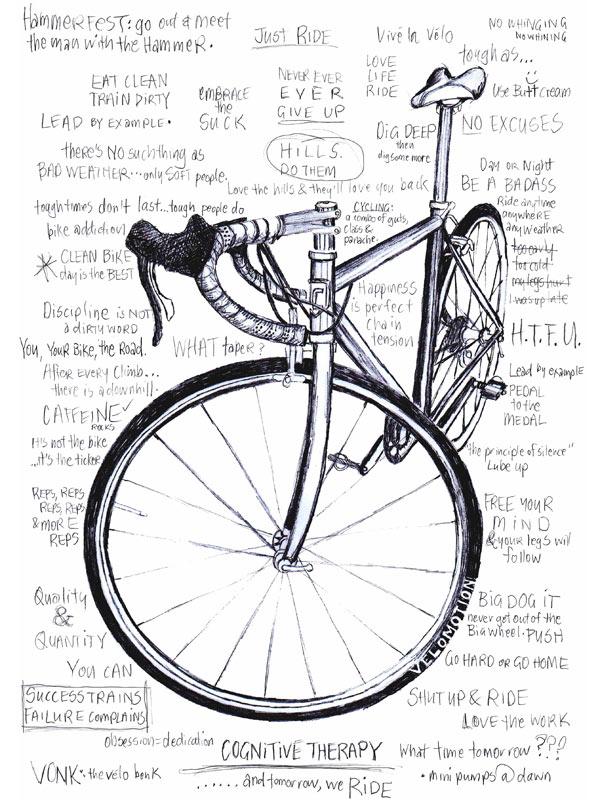 HAMMERFEST: go out & meet
the man with the HAMMER.
JUST RIDE
Vive Le Vélo
NO WHINGING
NOWHINING
LOVE
LIFE
RIDE
tough as...
EAT CLEAN
TRAIN DIRTY
EMBRACE
the
SUCK
NEVER EVER
EVER
GIVE UP
Use Butt Cream
LEAD BY EXAMPLE.
DIG DEEP
then
dig some more
NO EXCUSES
there's NO such thing as
BAD WEATHER...only SOFT people.
HILLS.
DO THEM
Love the hills & they'll love you back
Day or Night
BE A BADASS
Ride anytime
anywhere
any weather
too early
too cold
my legs hurt
I was up late
tough times don't last...tough people do
bike addiction
CYCLING:
a combo of guts,
class &
panache.
CLEAN BIKE
day is the BEST
Happiness
is perfect
chain
tension
Discipline is NOT
a DIRTY WORD
H.T.F.U.
You, Your Bike, the Road.
WHAT taper?
AFTER EVERY CLIMB...
there is a downhill.
Lead by example
PEDAL
to the
MEDAL
CAFFEINE
ROCKS
It's not the bike
...it's the ticker
"the principle of silence"
Lube up
REPS, REPS
REPS, REPS
& MORE
REPS
FREE YOUR
MIND
& your legs will
follow
Quality
&
QUANTITY
VELOMOTION
BIG DOG IT
never get out of the
Big wheel. PUSH
YOU CAN
GO HARD OR GO HOME
SUCCESS TRAINS
FAILURE COMPLAINS
SHUT UP & RIDE
LOVE the WORK
obsession = dedication
COGNITIVE THERAPY
What time tomorrow ???
VONK: the velo bonk
......and tomorrow, we RIDE
• mini pumps @ dawn